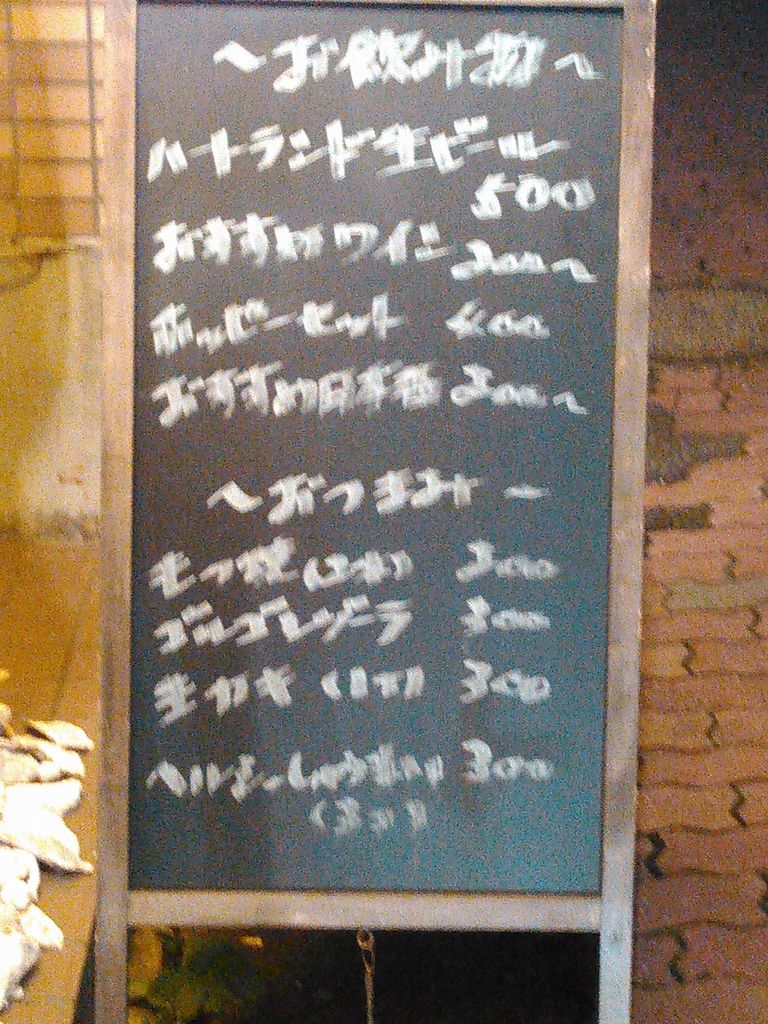 ～お飲み物～
ハートランド生ビール
500
おすすめワイン 300～
ホッピーセット 400
おすすめ日本酒 300～
～おつまみ～
もつ焼(2本) 300
ゴルゴンゾーラ 300
生カキ (1コ) 300
ヘルシーしゅうまい 300
(3コ)